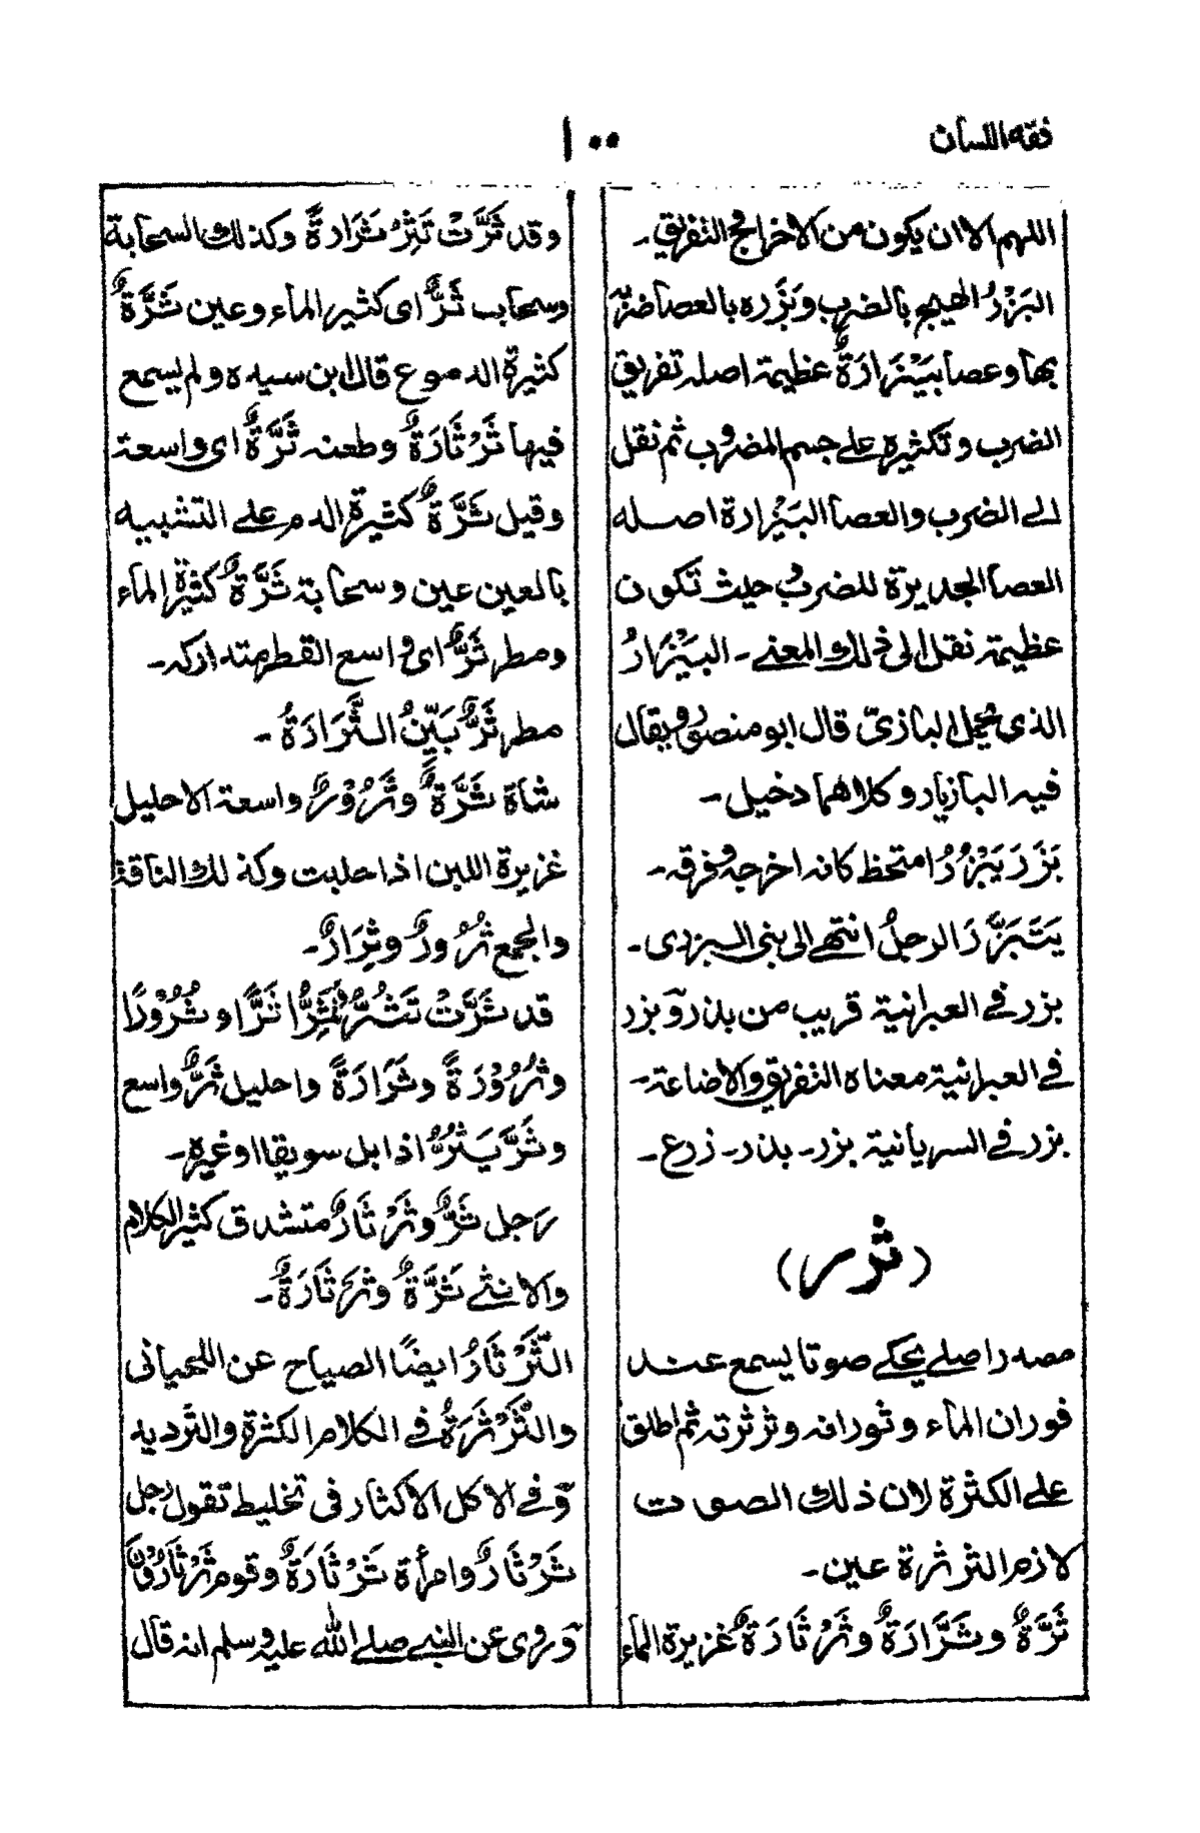 فقه اللسان
١٠٠
اللهم الا ان يكون من الاخراج والتفريق۔
البَزْرُ الهيج بالضرب وبَزَره بالعصا ضربه
بها وعصا بَيْزَارَةٌ عظيمة اصله تفريق
الضرب وتكثيره على جسم المضروب ثم نقل
الى الضرب والعصا البَيْزارة اصله
العصا الجديرة للضرب حيث تكون
عظيمة نقل الى ذلك المعنى۔ البَيْزَارُ
الذى يحمل البازىّ قال ابو منصور ويقال
فيه البازيار وكلاهما دخيل۔
بَزَرَ يَبْزُرُ امتخط كانه اخرجه وفرقه۔
يَتَبَزَّرَ الرجلُ انتهى الى بنى البزرى۔
بزر فى العبرانية قريب من بذر وبزر
فى العبرانية معناه التفريق والاضاعة۔
بزر فى السريانية بزر۔ بذر۔ زرع۔
(ثرر)
مصدر اصلى يحكى صوتا يسمع عند
فوران الماء وثورانه وثرثرته ثم اطلق
على الكثرة لان ذلك الصوت
لازم الثرثرة عين۔
ثَرَّةٌ وثَرَّارَةٌ وثَرْثَارَةٌ غزيرة الماء
وقد ثَرَّتْ تَثِرُّ ثَرَارَةً وكذلك السحابة
وسحاب ثَرٌّ اى كثير الماء وعين ثَرَّةٌ
كثيرة الدموع قال ابن سيده ولم يسمع
فيها ثَرْثَارَةٌ وطعنه ثَرَّةٌ اى واسعة
وقيل ثَرَّةٌ كثيرة الدم على التشبيه
بالعين عين وسحابة ثَرَّةٌ كثيرة الماء
ومطر ثَرٌّ اى واسع القطر متداركه۔
مطر ثَرٌّ بَيِّنُ الثَّرَارَةُ۔
شاة ثَرَّةٌ وثَرُوْرٌ واسعة الاحليل
غزيرة اللبن اذا حلبت وكذلك الناقة
والجمع ثُرُورٌ وثِرَارٌ۔
قد ثَرَّتْ تَثُرُّ وتَثِرُّ ثَرًّا وثُرُوْرًا
وثُرُوْرَةً وثَرَارَةً واحليل ثَرٌّ واسع
وثَرَّ يَثُرُّ اذا بل سويقا او غيره۔
رجل ثَرٌّ وثَرْثَارٌ متشدق كثير الكلام
والانثى ثَرَّةٌ وثَرْثَارَةٌ۔
الثَّرْثَارُ ايضًا الصياح عن اللحيانى
والثَّرْثَرَةُ فى الكلام الكثرة والترديد
وفى الاكل الاكثار فى تخليط تقول رجل
ثَرْثَارٌ وامرأة ثَرْثَارَةٌ وقوم ثَرْثَارُوْنَ
وروى عن النبى صلى الله عليه وسلم انه قال